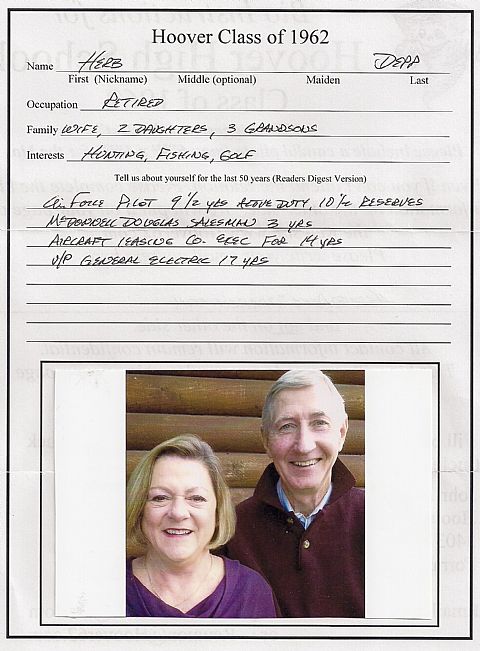 Hoover Class of 1962
Name HERB DEPP
First (Nickname) Middle (optional) Maiden Last
Occupation RETIRED
Family WIFE, 2 DAUGHTERS, 3 GRANDSONS
Interests HUNTING, FISHING, GOLF
Tell us about yourself for the last 50 years (Readers Digest Version)
AIR FORCE PILOT 9 1/2 YRS ACTIVE DUTY, 10 1/2 RESERVES
McDONNELL DOUGLAS SALESMAN 3 YRS
AIRCRAFT LEASING CO. EXEC FOR 14 YRS
V/P GENERAL ELECTRIC 17 YRS